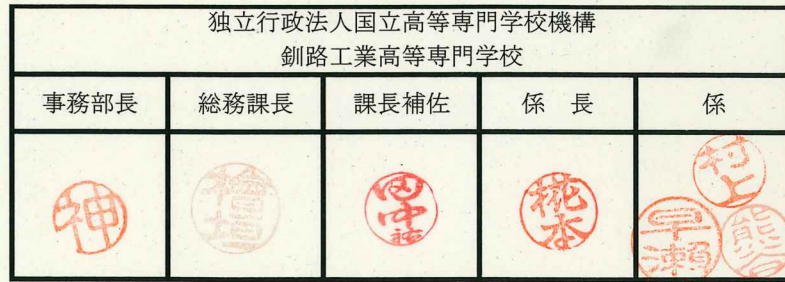 独立行政法人国立高等専門学校機構
釧路工業高等専門学校
事務部長 総務課長 課長補佐 係 長 係
神
檜垣
田中
椛本
村上
早瀬
熊谷